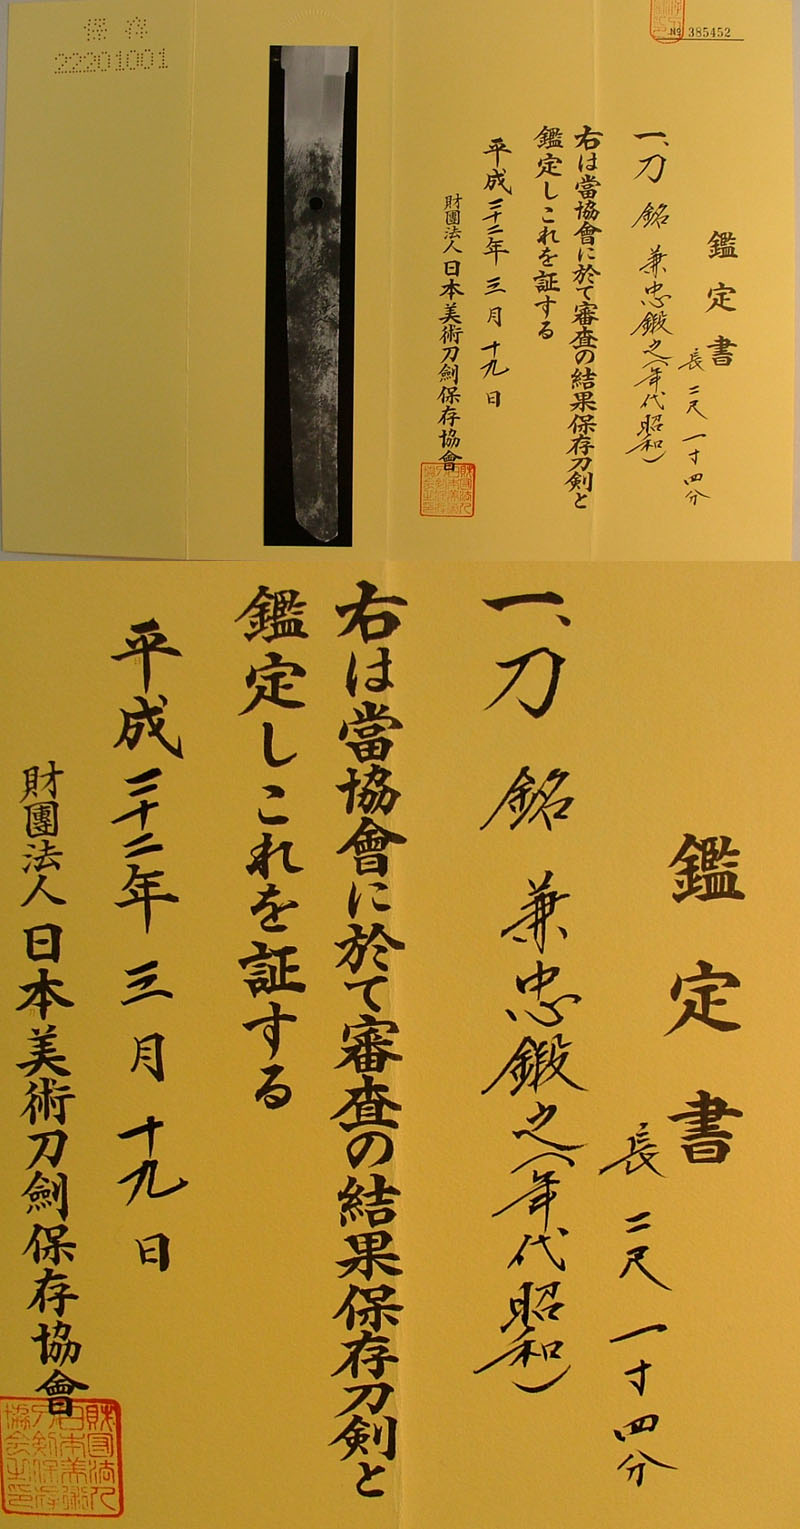 保存
22201001
№ 385452
鑑定書
長 二尺一寸四分
一、刀 銘 兼忠鍛之(年代昭和)
右は當協會に於て審査の結果保存刀剣と
鑑定しこれを証する
平成二十二年 三月 十九日
財團法人 日本美術刀劍保存協會
鑑定書
長 二尺一寸四分
一、刀 銘 兼忠鍛之(年代昭和)
右は當協會に於て審査の結果保存刀剣と
鑑定しこれを証する
平成二十二年 三月 十九日
財團法人 日本美術刀劍保存協會